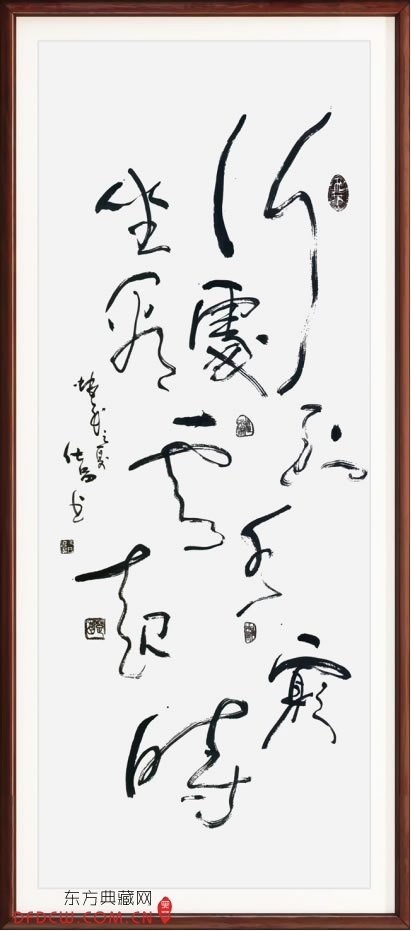 行到水窮處
坐看雲起時
东方典藏网
DFDCW.COM.CN